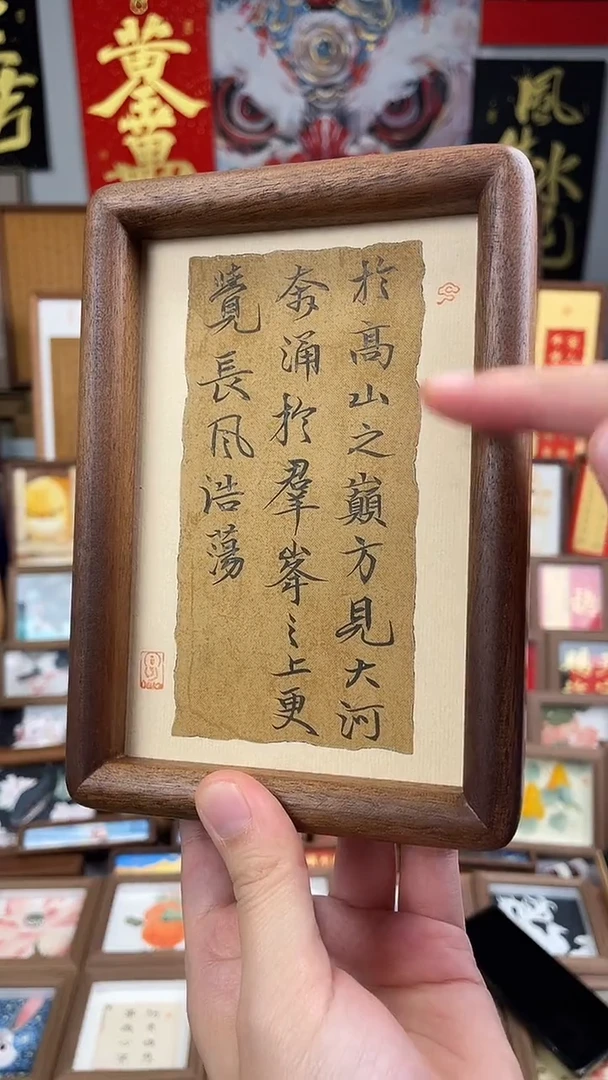 於高山之巔方見大河
奔涌於羣峯之上更
覺長風浩蕩
黃金萬
風
水